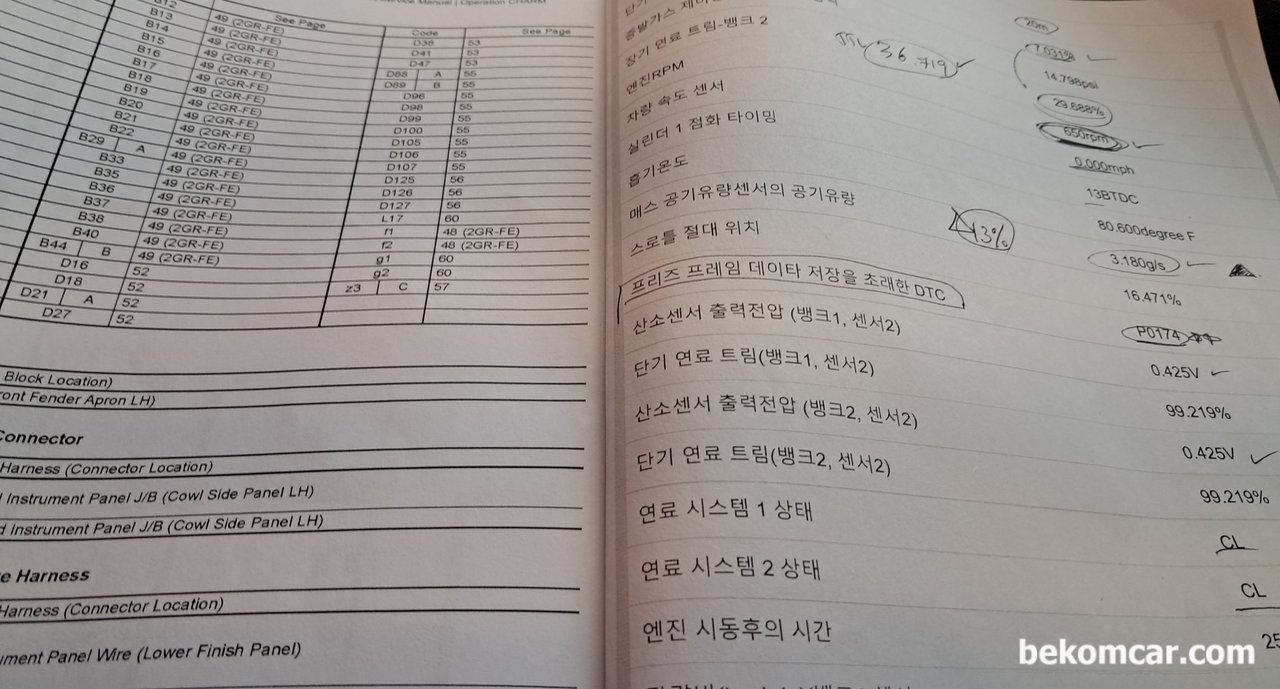 Service Manual | Operation CHARM
See Page
Code
See Page
B12
B13 49 (2GR-FE)
B14 49 (2GR-FE)
B15 49 (2GR-FE)
B16 49 (2GR-FE)
B17 49 (2GR-FE)
B18 49 (2GR-FE)
B19 49 (2GR-FE)
B20 49 (2GR-FE)
B21 49 (2GR-FE)
B22 49 (2GR-FE)
B29 A 49 (2GR-FE)
B33 49 (2GR-FE)
B35 49 (2GR-FE)
B36 49 (2GR-FE)
B37 49 (2GR-FE)
B38 49 (2GR-FE)
B40 49 (2GR-FE)
B44 B 49 (2GR-FE)
D16 52
D18 52
D21 A 52
D27 52
D38 53
D41 53
D47 53
D88 A 55
D89 B 55
D96 55
D98 55
D99 55
D100 55
D105 55
D106 55
D107 55
D125 56
D126 56
D127 56
L17 60
f1 48 (2GR-FE)
f2 48 (2GR-FE)
g1 60
g2 60
z3 C 57
Block Location)
ront Fender Apron LH)
Connector
Harness (Connector Location)
d Instrument Panel J/B (Cowl Side Panel LH)
d Instrument Panel J/B (Cowl Side Panel LH)
e Harness
Harness (Connector Location)
ument Panel Wire (Lower Finish Panel)
단기
증발가스 제어
장기 연료 트림-뱅크 2
엔진RPM
차량 속도 센서
실린더 1 점화 타이밍
흡기온도
매스 공기유량센서의 공기유량
스로틀 절대 위치
프리즈 프레임 데이타 저장을 초래한 DTC
산소센서 출력전압 (뱅크1, 센서2)
단기 연료 트림(뱅크1, 센서2)
산소센서 출력전압 (뱅크2, 센서2)
단기 연료 트림(뱅크2, 센서2)
연료 시스템 1 상태
연료 시스템 2 상태
엔진 시동후의 시간
36.719
13%
7.031%
14.798psi
29.688%
650rpm
0.000mph
13BTDC
80.600degree F
3.180g/s
16.471%
P0174
0.425V
99.219%
0.425V
99.219%
CL
CL
25
bekomcar.com